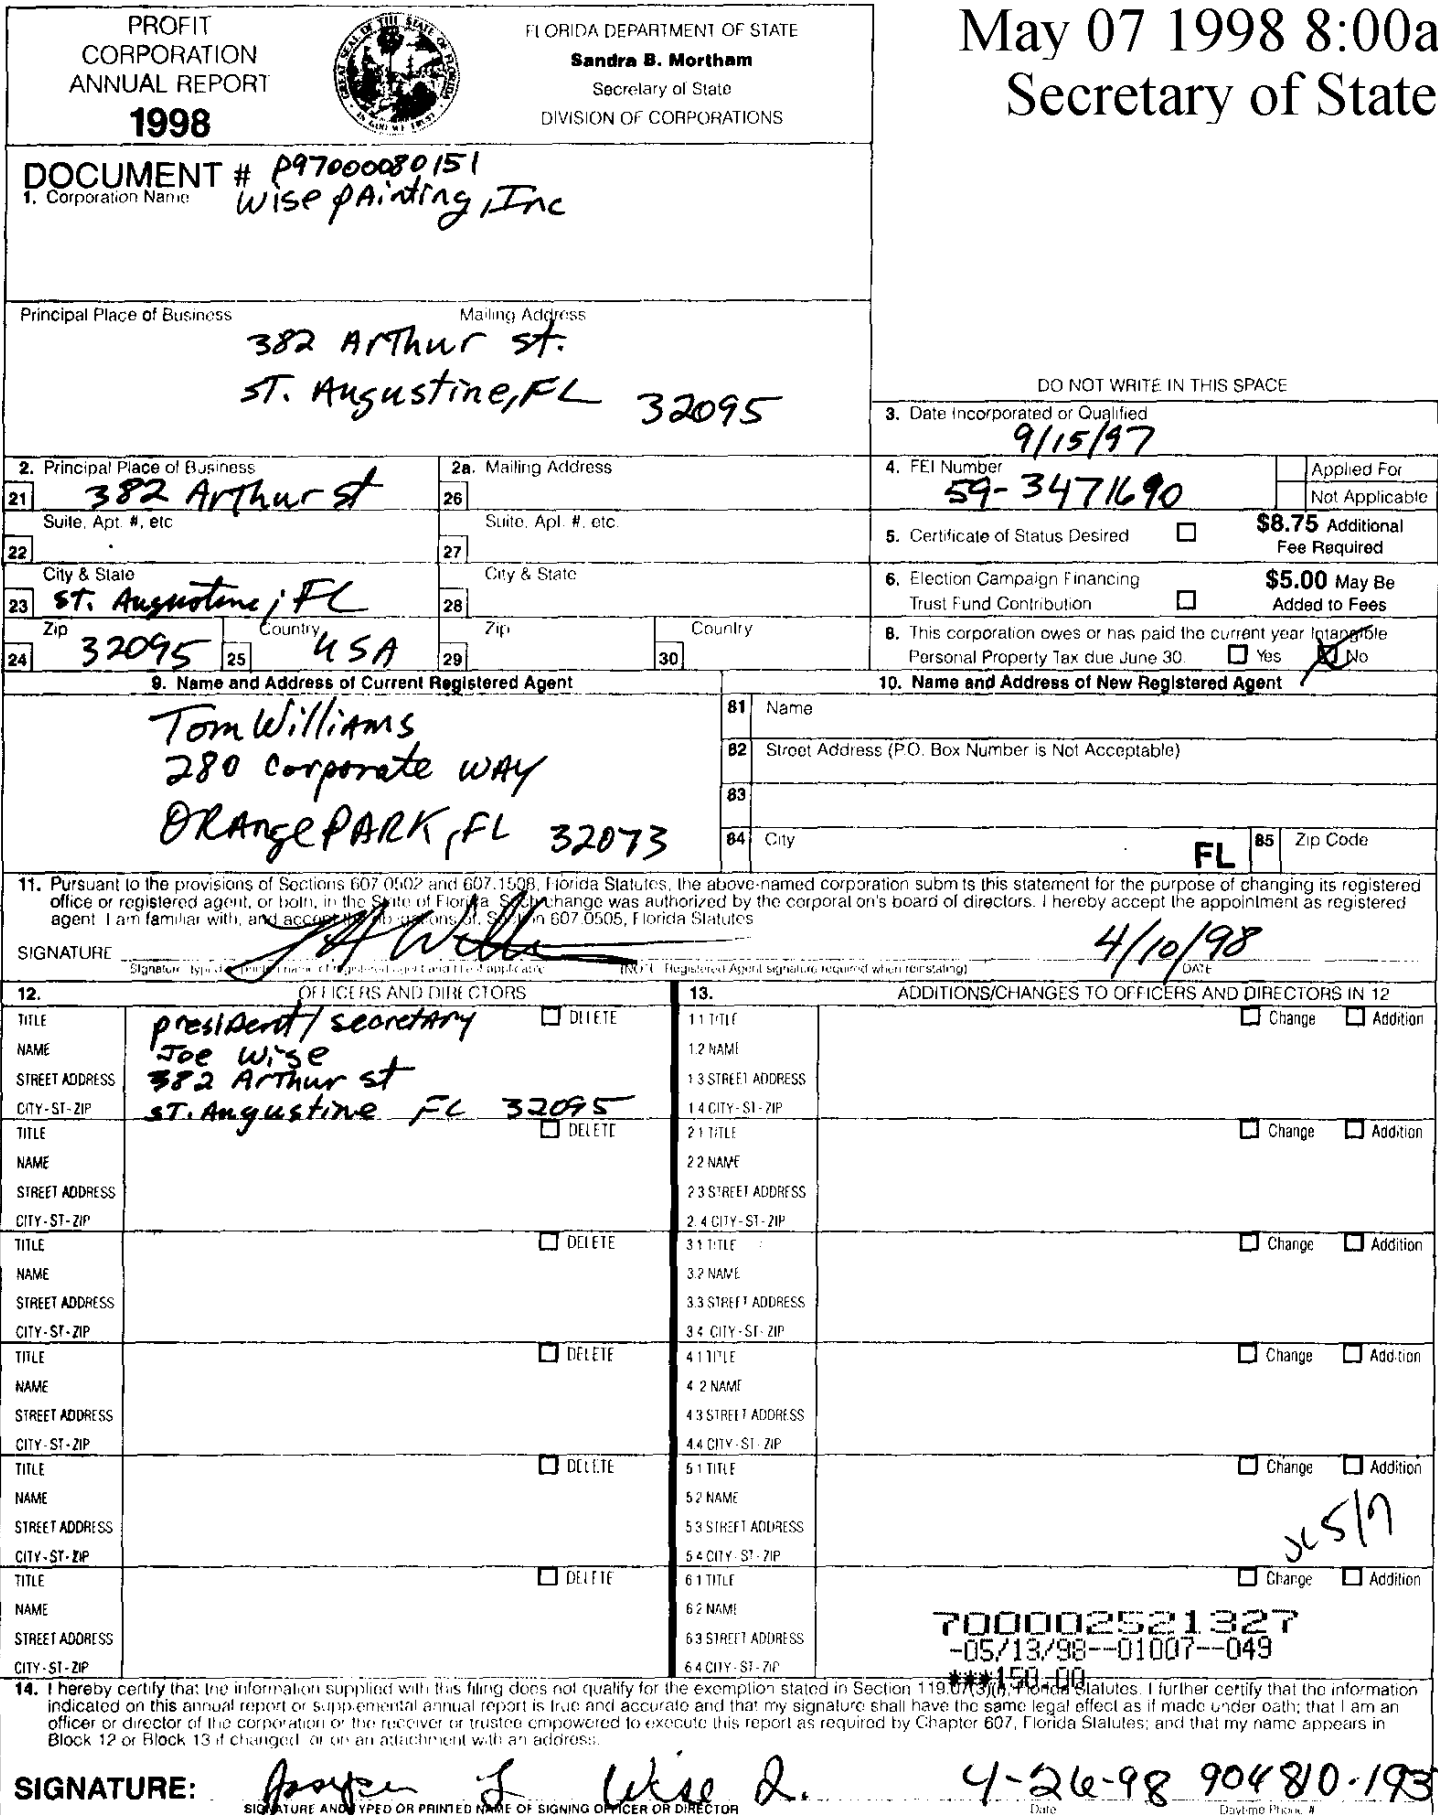 PROFIT
CORPORATION
ANNUAL REPORT
1998
FLORIDA DEPARTMENT OF STATE
Sandra B. Mortham
Secretary of State
DIVISION OF CORPORATIONS
May 07 1998 8:00a
Secretary of State
DOCUMENT # P97000080151
1. Corporation Name
Wise Painting, Inc
Principal Place of Business Mailing Address
382 Arthur St.
ST. Augustine, FL 32095
DO NOT WRITE IN THIS SPACE
3. Date Incorporated or Qualified
9/15/97
2. Principal Place of Business
21 382 Arthur St
2a. Mailing Address
26
4. FEI Number
59-3471690
Applied For
Not Applicable
Suite, Apt. #, etc
22
Suite, Apt. #, etc.
27
5. Certificate of Status Desired
$8.75 Additional
Fee Required
City & State
23 ST. Augustine, FL
City & State
28
6. Election Campaign Financing
Trust Fund Contribution
$5.00 May Be
Added to Fees
Zip
24 32095
Country
25 USA
Zip
29
Country
30
8. This corporation owes or has paid the current year Intangible
Personal Property Tax due June 30. Yes No
9. Name and Address of Current Registered Agent
Tom Williams
280 Corporate WAY
ORANGE PARK, FL 32073
10. Name and Address of New Registered Agent
81 Name
82 Street Address (P.O. Box Number is Not Acceptable)
83
84 City FL 85 Zip Code
11. Pursuant to the provisions of Sections 607.0502 and 607.1508, Florida Statutes, the above-named corporation submits this statement for the purpose of changing its registered
office or registered agent, or both, in the State of Florida. Such change was authorized by the corporation's board of directors. I hereby accept the appointment as registered
agent. I am familiar with, and accept the obligations of, Section 607.0505, Florida Statutes
SIGNATURE 4/10/98
Signature, typed or printed name of registered agent and title if applicable (NOTE: Registered Agent signature required when reinstating) DATE
12. OFFICERS AND DIRECTORS
TITLE president/secretary DELETE
NAME Joe Wise
STREET ADDRESS 382 Arthur St
CITY-ST-ZIP ST. Augustine FL 32095
TITLE DELETE
NAME
STREET ADDRESS
CITY-ST-ZIP
TITLE DELETE
NAME
STREET ADDRESS
CITY-ST-ZIP
TITLE DELETE
NAME
STREET ADDRESS
CITY-ST-ZIP
TITLE DELETE
NAME
STREET ADDRESS
CITY-ST-ZIP
TITLE DELETE
NAME
STREET ADDRESS
CITY-ST-ZIP
13. ADDITIONS/CHANGES TO OFFICERS AND DIRECTORS IN 12
1.1 TITLE Change Addition
1.2 NAME
1.3 STREET ADDRESS
1.4 CITY-ST-ZIP
2.1 TITLE Change Addition
2.2 NAME
2.3 STREET ADDRESS
2.4 CITY-ST-ZIP
3.1 TITLE Change Addition
3.2 NAME
3.3 STREET ADDRESS
3.4 CITY-ST-ZIP
4.1 TITLE Change Addition
4.2 NAME
4.3 STREET ADDRESS
4.4 CITY-ST-ZIP
5.1 TITLE Change Addition
5.2 NAME
5.3 STREET ADDRESS
5.4 CITY-ST-ZIP
5/7
6.1 TITLE Change Addition
6.2 NAME
6.3 STREET ADDRESS
6.4 CITY-ST-ZIP
700002521327
-05/13/98--01007--049
***150.00
14. I hereby certify that the information supplied with this filing does not qualify for the exemption stated in Section 119.07(3)(i), Florida Statutes. I further certify that the information
indicated on this annual report or supplemental annual report is true and accurate and that my signature shall have the same legal effect as if made under oath; that I am an
officer or director of the corporation or the receiver or trustee empowered to execute this report as required by Chapter 607, Florida Statutes; and that my name appears in
Block 12 or Block 13 if changed, or on an attachment with an address.
SIGNATURE: Wise 4-26-98 904 810-193
SIGNATURE AND TYPED OR PRINTED NAME OF SIGNING OFFICER OR DIRECTOR Date Daytime Phone #